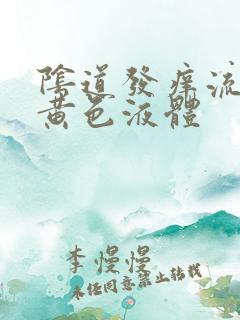 陰道發癢流
黃色液體
李慢慢
未經同意禁止轉載